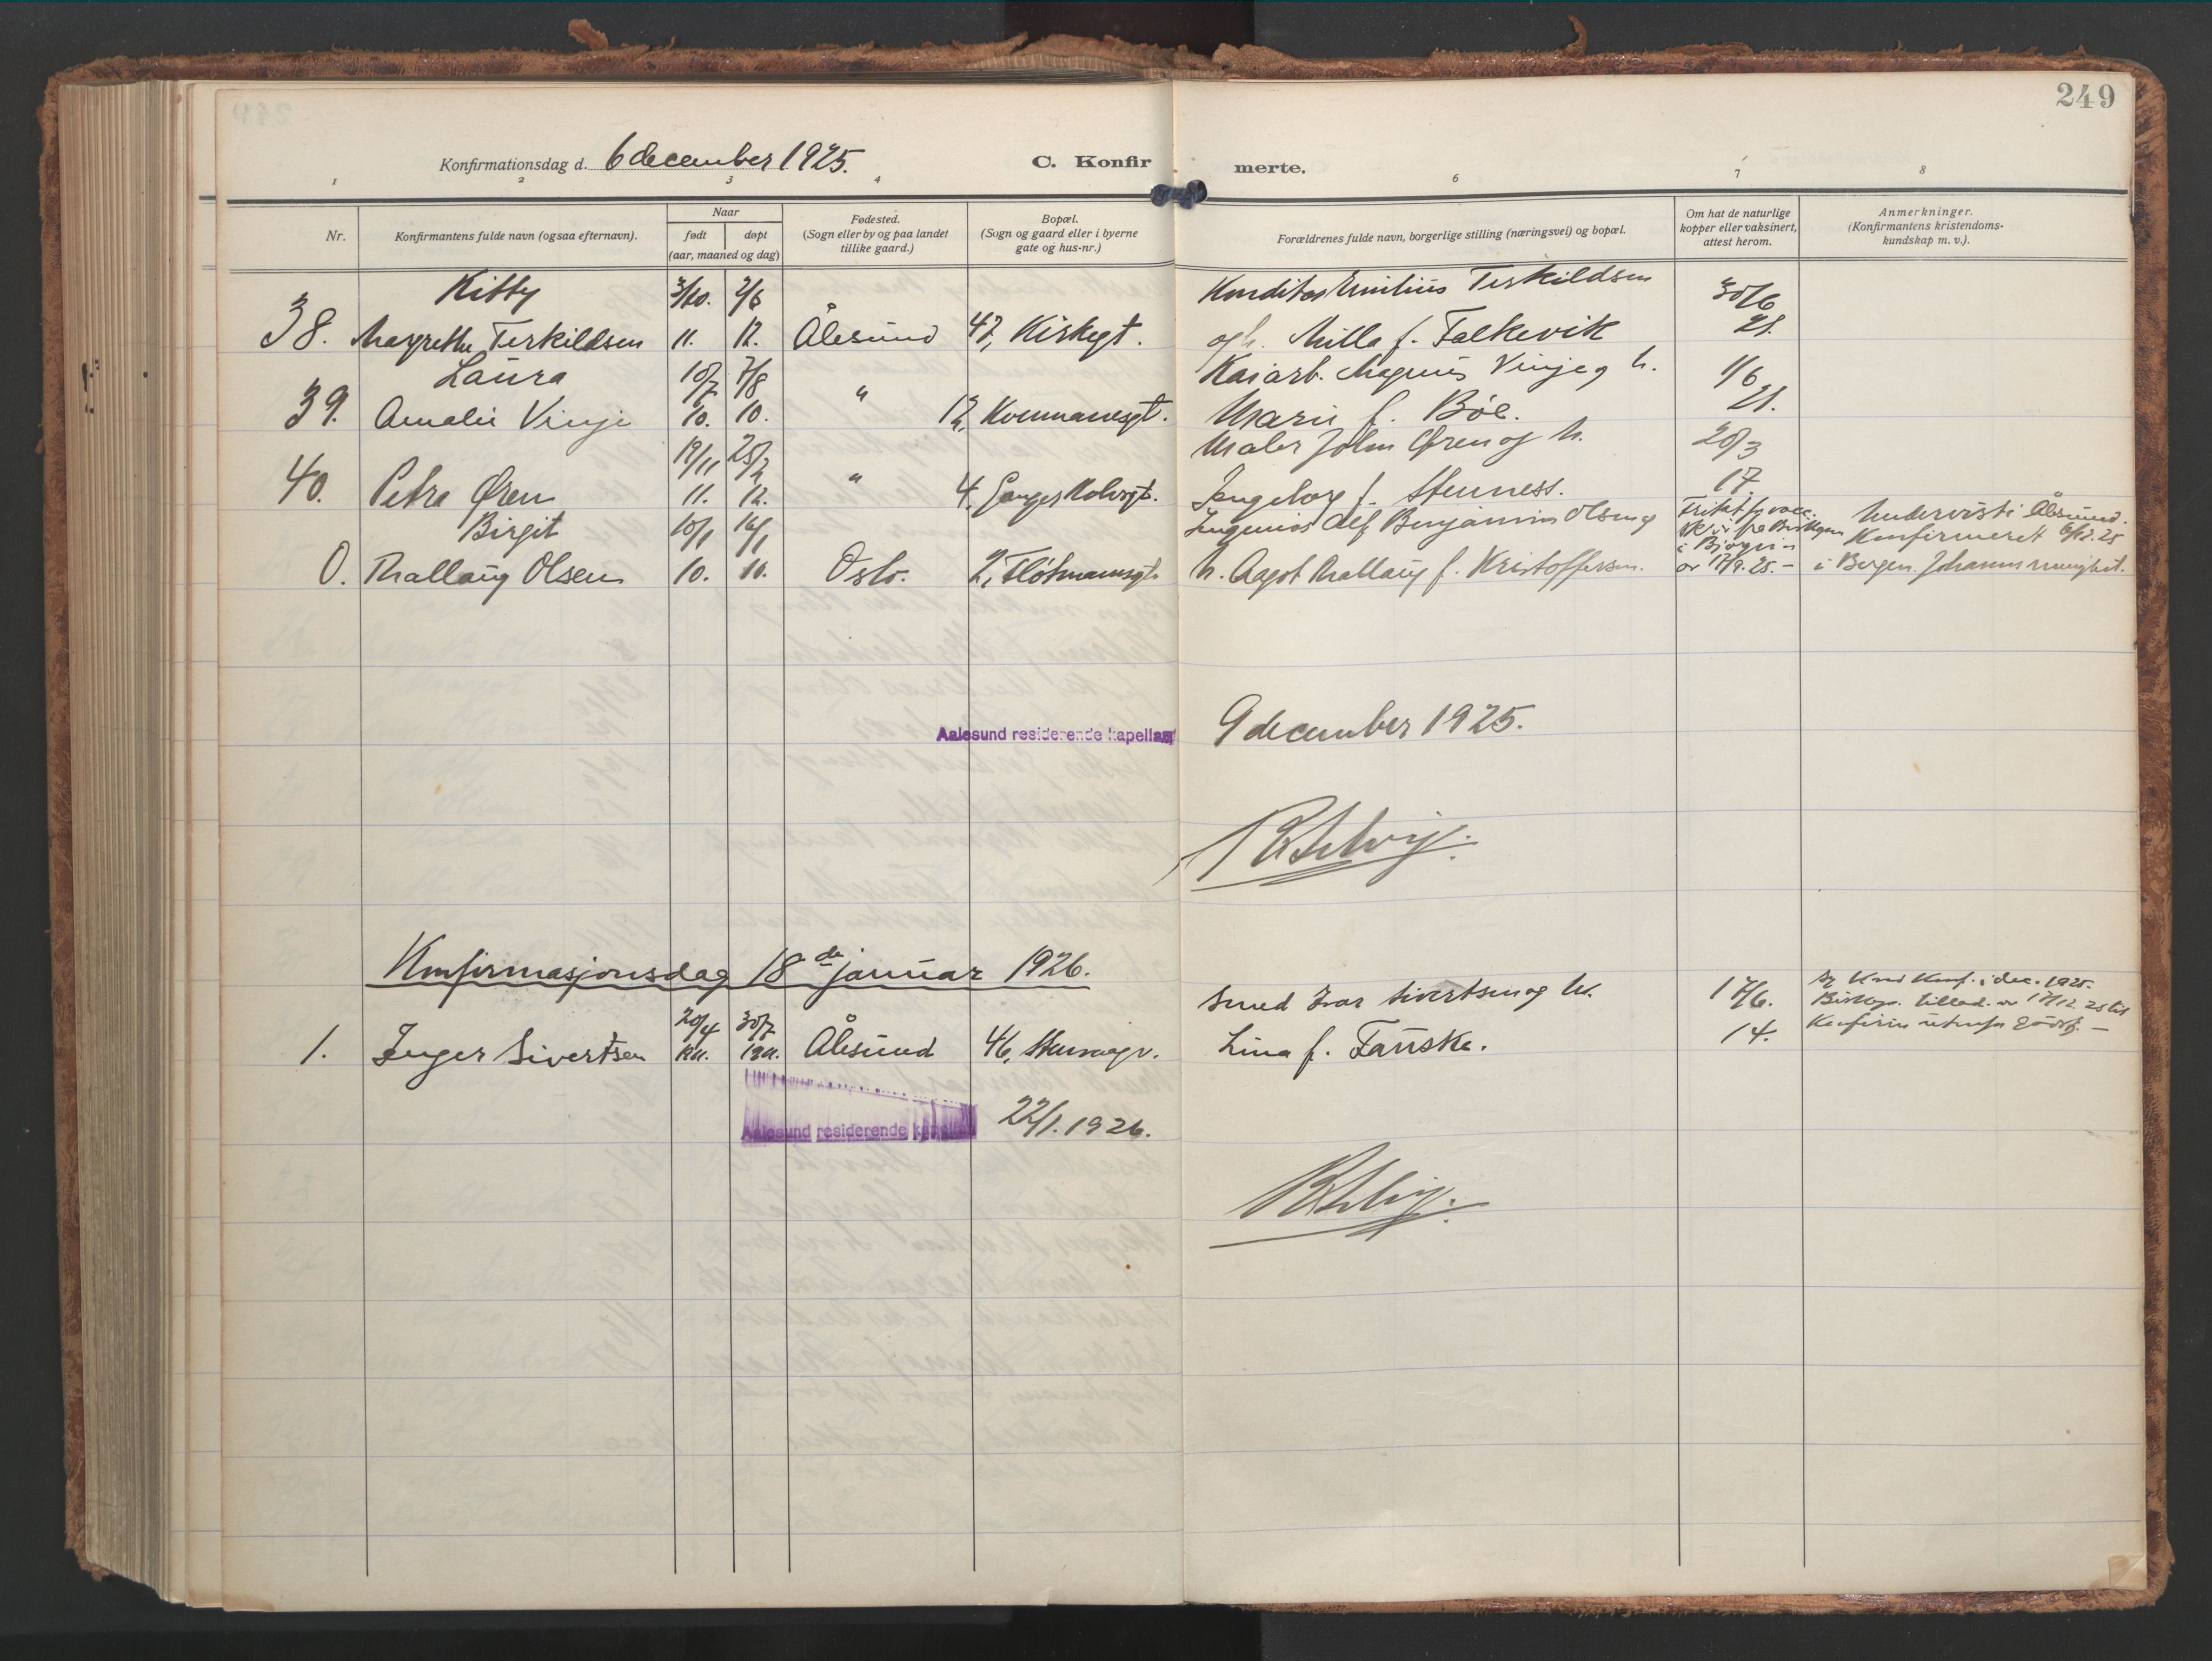 249
Konfirmationsdag d. 6 december 1925.
C. Konfirmerte.
1 2 3 4 6 7 8
Nr.
Konfirmantens fulde navn (ogsaa efternavn).
Naar
født døpt
(aar, maaned og dag)
Fødested.
(Sogn eller by og paa landet
tillike gaard.)
Bopæl.
(Sogn og gaard eller i byerne
gate og hus-nr.)
Forældrenes fulde navn, borgerlige stilling (næringsvei) og bopæl.
Om hat de naturlige
kopper eller vaksinert,
attest herom.
Anmerkninger.
(Konfirmantens kristendoms-
kundskap m. v.).
Kitty 3/10. 2/6 Konditor Emilius Terkildsen 30/6
38. Margrethe Terkildsen 11. 12. Ålesund 47, Kirkegt. og h. Milla f. Falkevik 21.
Laura 10/7 7/8 Kaiarb. Magnus Vinje og h. 1/6
39. Amalie Vinje 10. 10. " 12, Kornmansgt. Marie f. Böe. 21.
19/11 25/2 Maler John Øren og h. 20/3
40. Petra Øren 11. 12. " 4, Ganger Rolvsgt. Ingeborg f. Stenness. 17.
Birgit 10/1 16/1 Ingeniør Alf Benjamin Olsen og Fritat fr vacc. Undervist i Ålesund.
i Bjørgvin Konfirmeret 6/12. 25
0. Thallaug Olsen 10. 10. Oslo. 2, Flötmannsgt. h. Aagot Thallaug f. Kristoffersen. av 17/9. 25. – i Bergen. Johannes menighet.
Aalesund residerende kapellani 9 december 1925.
Konfirmasjonsdag 18de januar 1926.
Smed Ivar Sivertsen og h. 17/6. Konf. i dec. 1925.
20/4 30/7 Biskop. tillad. av 17/12 25 til
1. Inger Sivertsen 1911. 1911. Ålesund 46, Lina f. Fauske. 14.
Aalesund residerende kapellani 22/1. 1926.